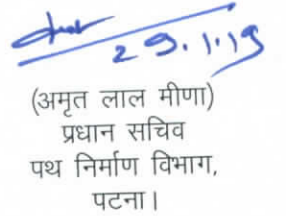 29.1.19
(अमृत लाल मीणा)
प्रधान सचिव
पथ निर्माण विभाग,
पटना।